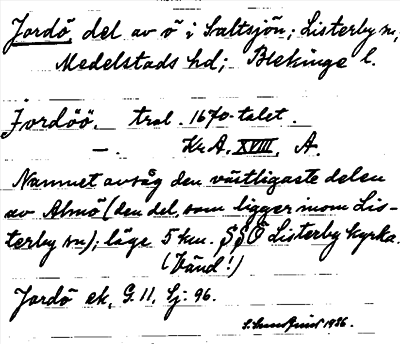 Jordö, del av ö i Saltsjön; Listerby sn,
Medelstads hd; Blekinge l.
Jordöö. trol. 1670-talet.
—. Kr.A. XVIII. A.
Namnet avsåg den västligaste delen
av Almö (den del, som ligger inom Lis-
terby sn); läge 5 km. SSÖ Listerby kyrka.
(Vänd!)
Jordö ek. G. 11, Sj: 96.
1936.